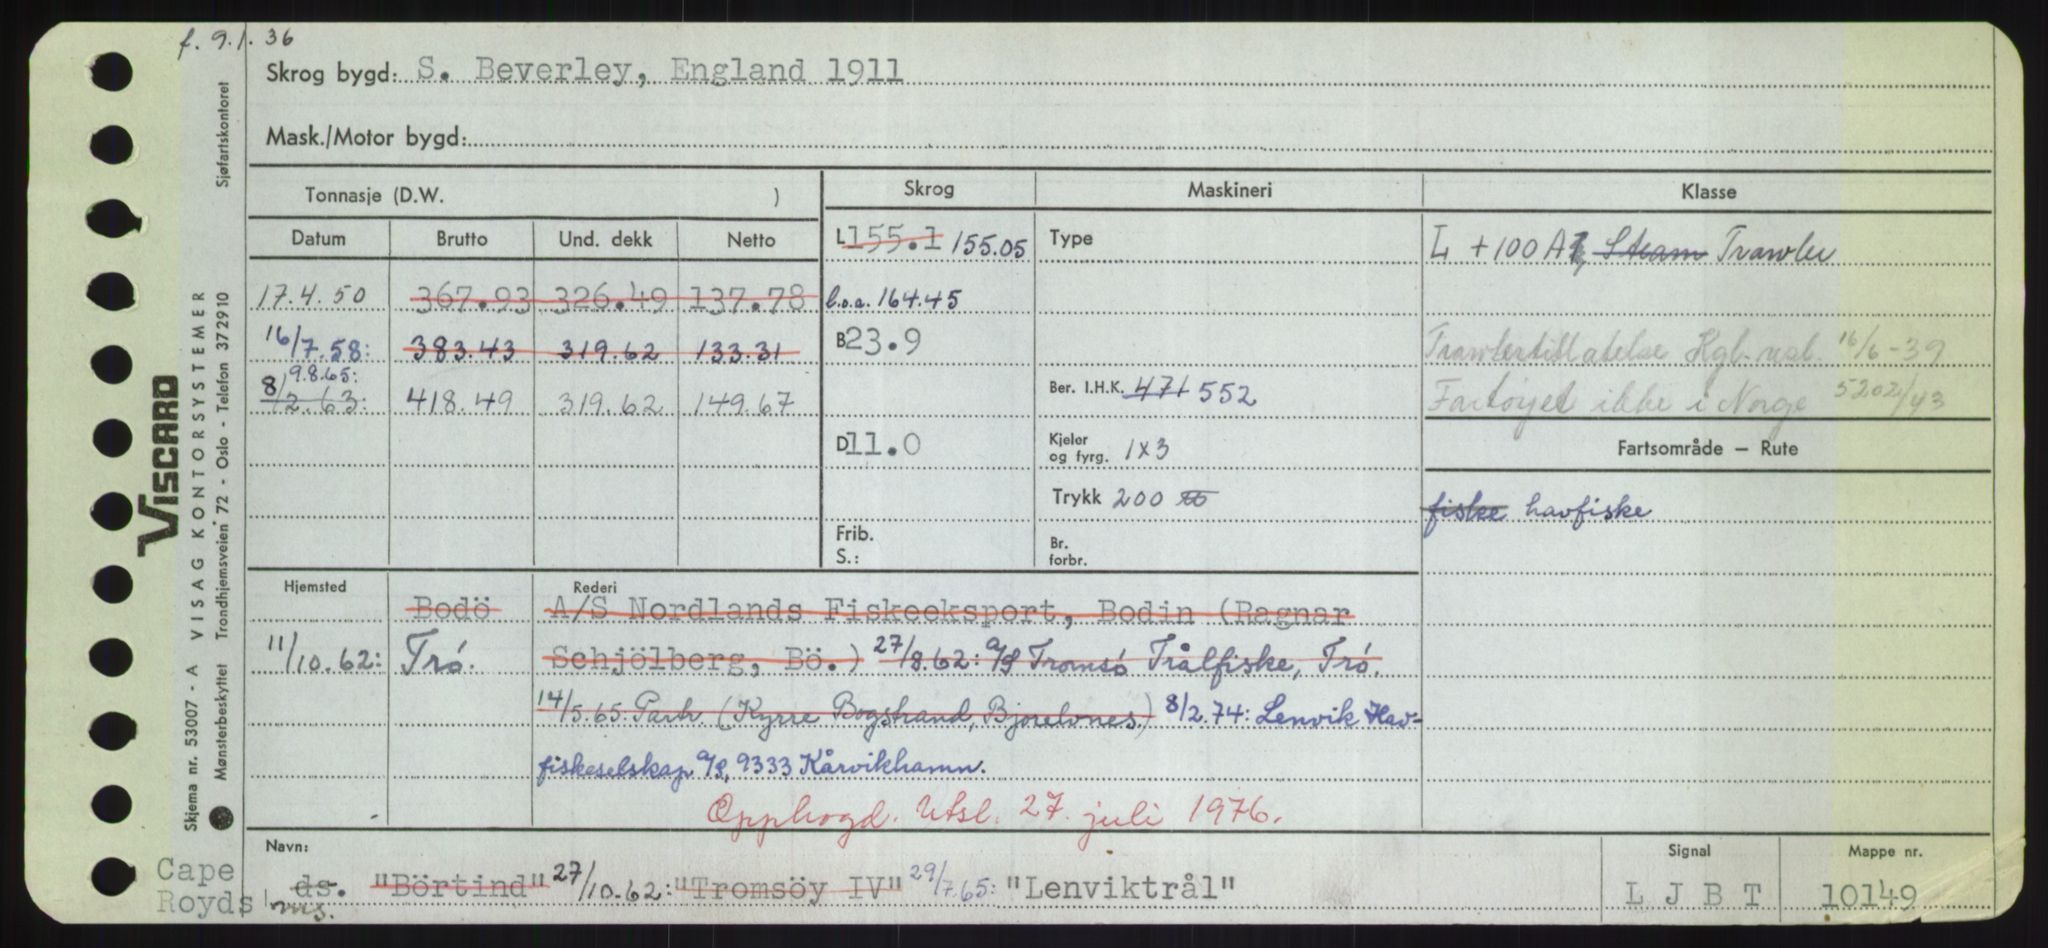 f. 9.1.36
Skrog bygd: S. Beverley, England 1911
Mask./Motor bygd:
Tonnasje (D.W. )
Skrog
Maskineri
Klasse
Datum Brutto Und. dekk Netto
L 155.1 155.05
Type
L +100 A1, Steam Trawler
17.4.50 367.93 326.49 137.78
l.o.a. 164.45
16/7.58: 383.43 319.62 133.31
B 23.9
Trawlertillatelse Kgl. resl. 16/6-39
9.8.65:
8/2.63: 418.49 319.62 149.67
Ber. I.H.K. 471 552
Fartøyet ikke i Norge 5202/43
D 11.0
Kjeler og fyrg. 1x3
Fartsområde — Rute
Trykk 200
fiske havfiske
Frib.
S.:
Br. forbr.
Hjemsted
Rederi
Bodö A/S Nordlands Fiskeeksport, Bodin (Ragnar
11/10.62: Trø. Schjölberg, Bö.) 27/8.62: A/S Tromsø Trålfiske, Trø.
14/5.65 Partr. (Kyrre Bogstrand, Bjorelvnes.) 8/2.74: Lenvik Hav-
fiskeselskap A/S, 9333 Kårvikhamn.
Opphogd. Utsl. 27. juli 1976.
Navn:
Signal
Mappe nr.
Cape
Royds
ds. "Börtind" 27/10.62: "Tromsöy IV" 29/7.65: "Lenviktrål"
ms.
L J B T
10149
Sjøfartskontoret
VISCARD
Skjema nr. 53007 - A VISAG KONTORSYSTEMER
Mønsterbeskyttet Trondhjemsveien 72 - Oslo - Telefon 372910